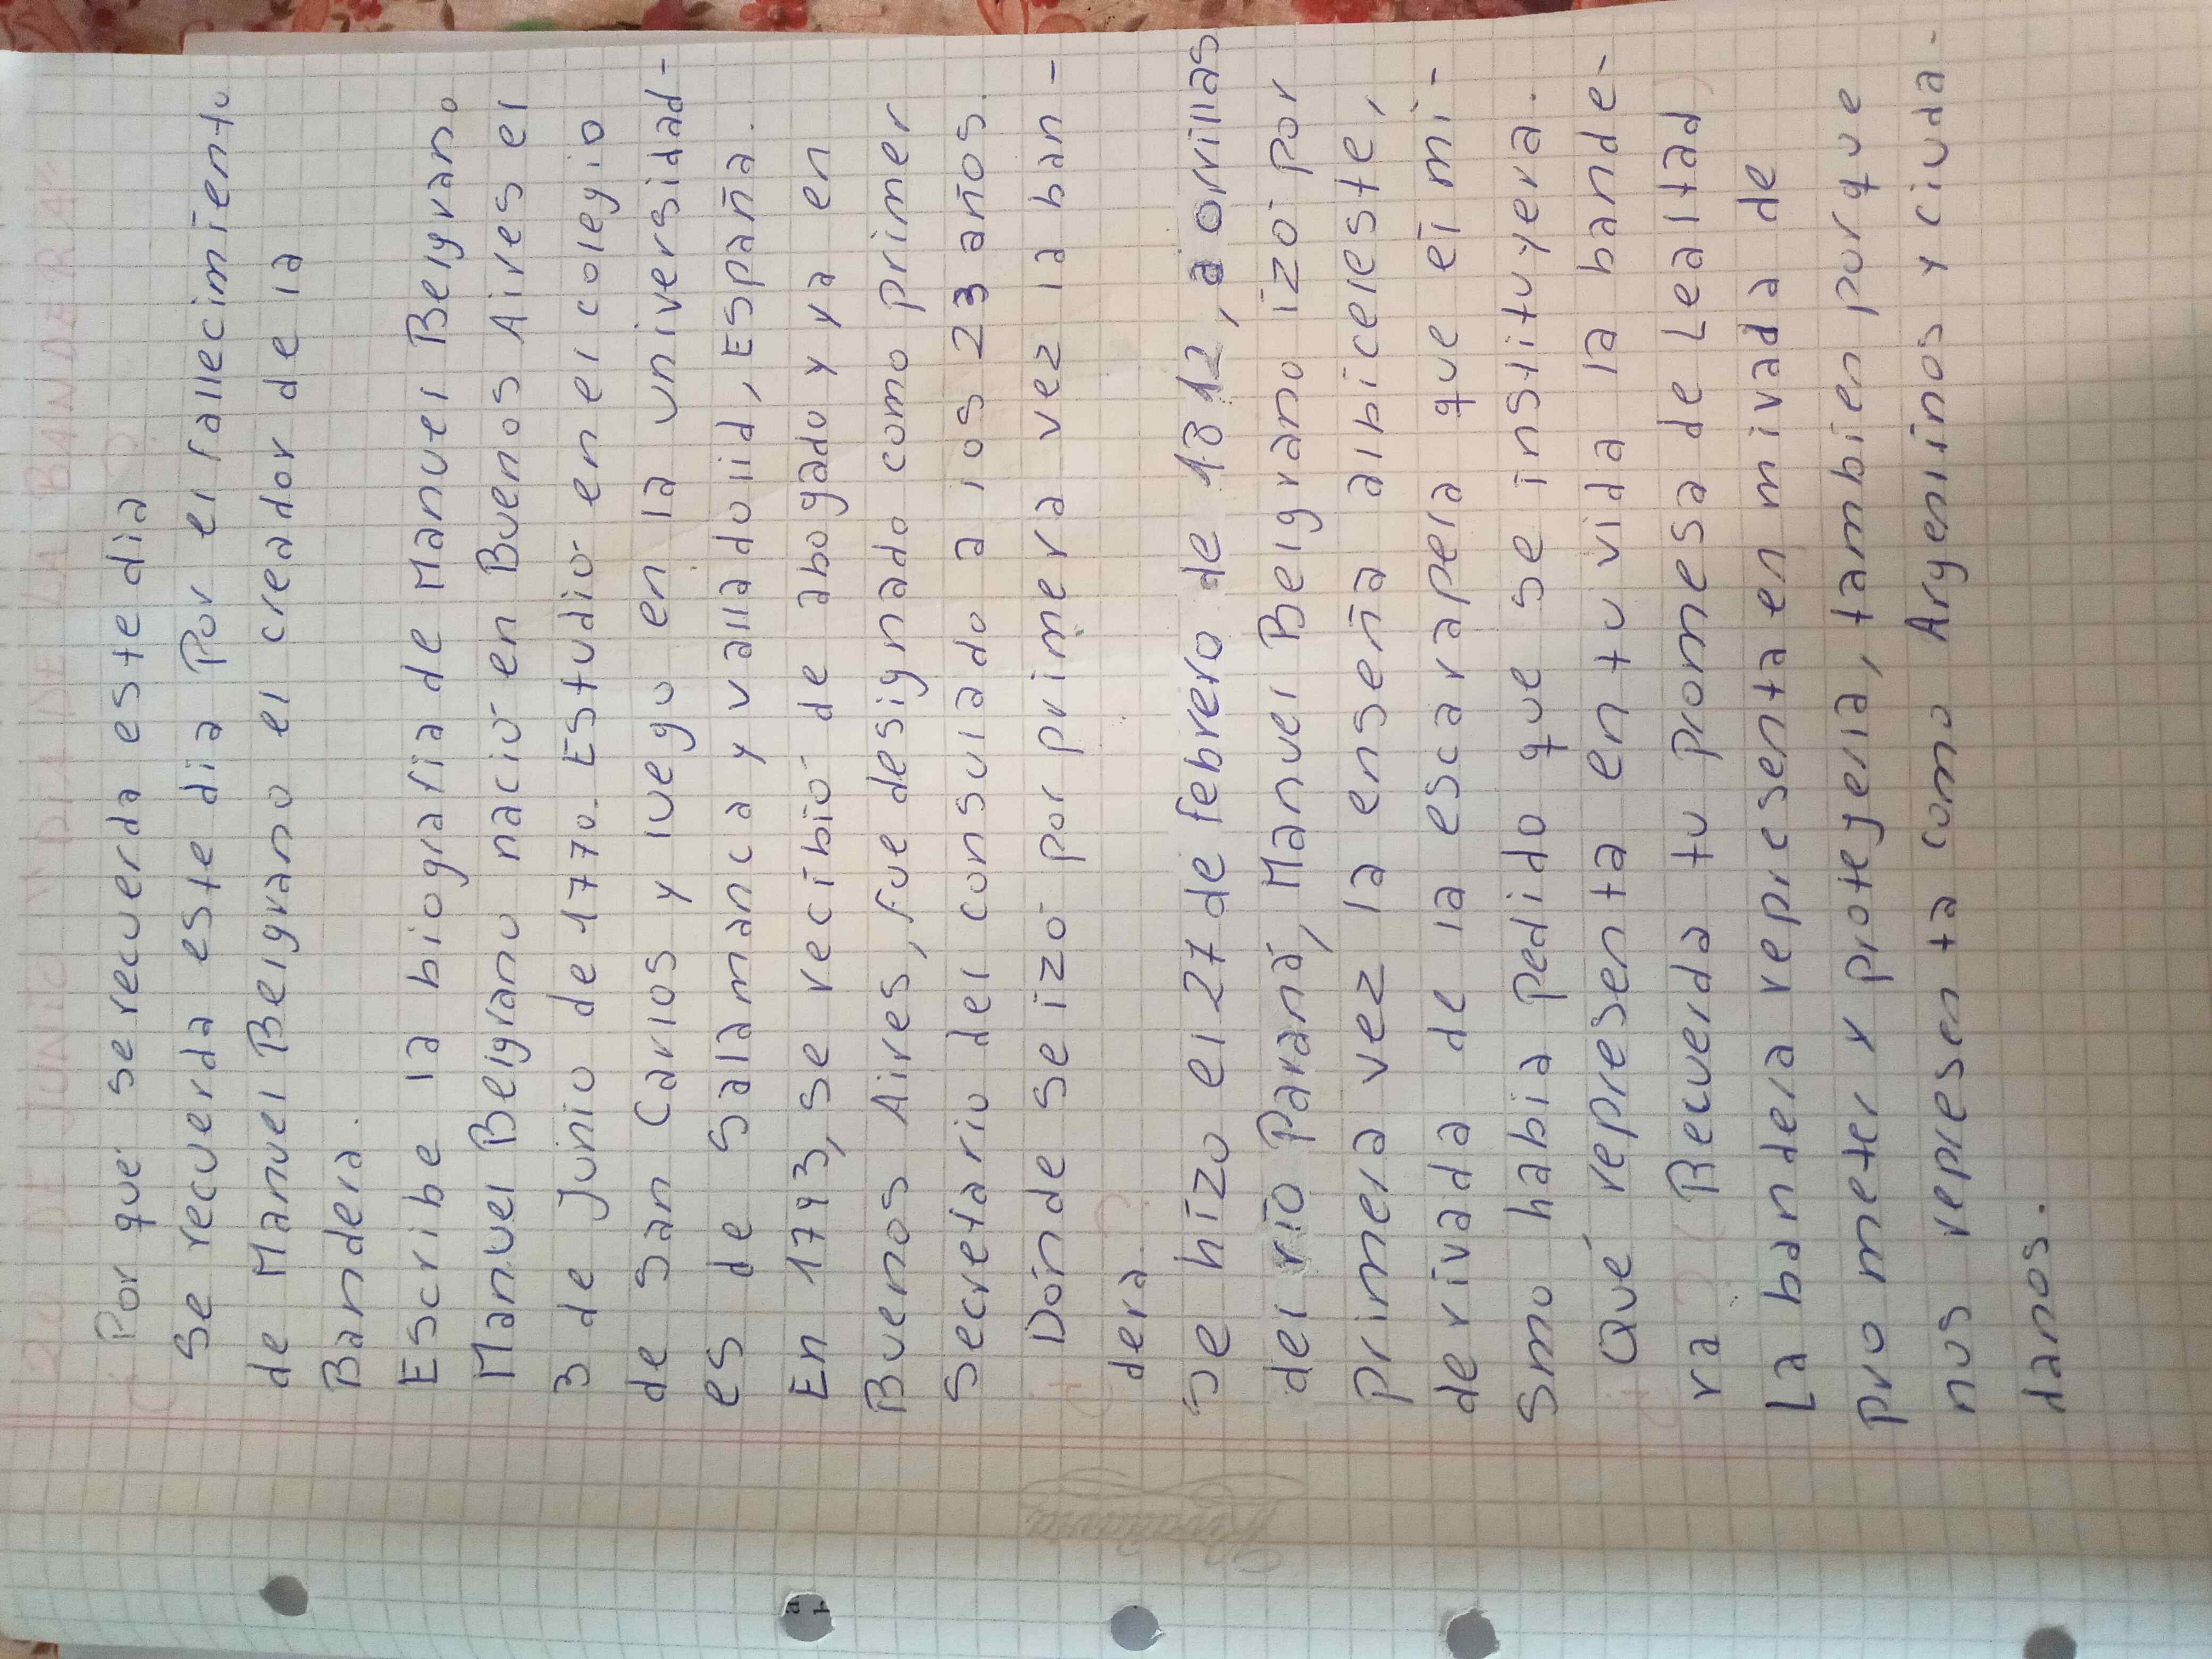 20 DE JUNIO "DIA DE LA BANDERA"
¿Por qué se recuerda este dia?
Se recuerda este dia Por el fallecimiento
de Manuel Belgrano el creador de la
Bandera.
Escribe la biografia de Manuel Belgrano
Manuel Belgrano nació en Buenos Aires el
3 de Junio de 1770. Estudió en el colegio
de San Carlos y luego en la universidad-
es de Salamanca y valladolid, España.
En 1793, se recibió de abogado y ya en
Buenos Aires, fue designado como primer
Secretario del consulado a los 23 años.
¿Dónde se izó por primera vez la ban-
dera?
Se hizo el 27 de febrero de 1812, a orillas
del río Paraná, Manuel Belgrano izó por
primera vez la enseña albiceleste,
derivada de la escarapela que él mi-
smo habia pedido que se instituyera.
¿Qué representa en tu vida la bande-
ra? (Recuerda tu promesa de Lealtad)
La bandera representa en mi vada de
prometer y protegerla, tambien porque
nos representa como Argentinos y ciuda-
danos.
Rivadavia